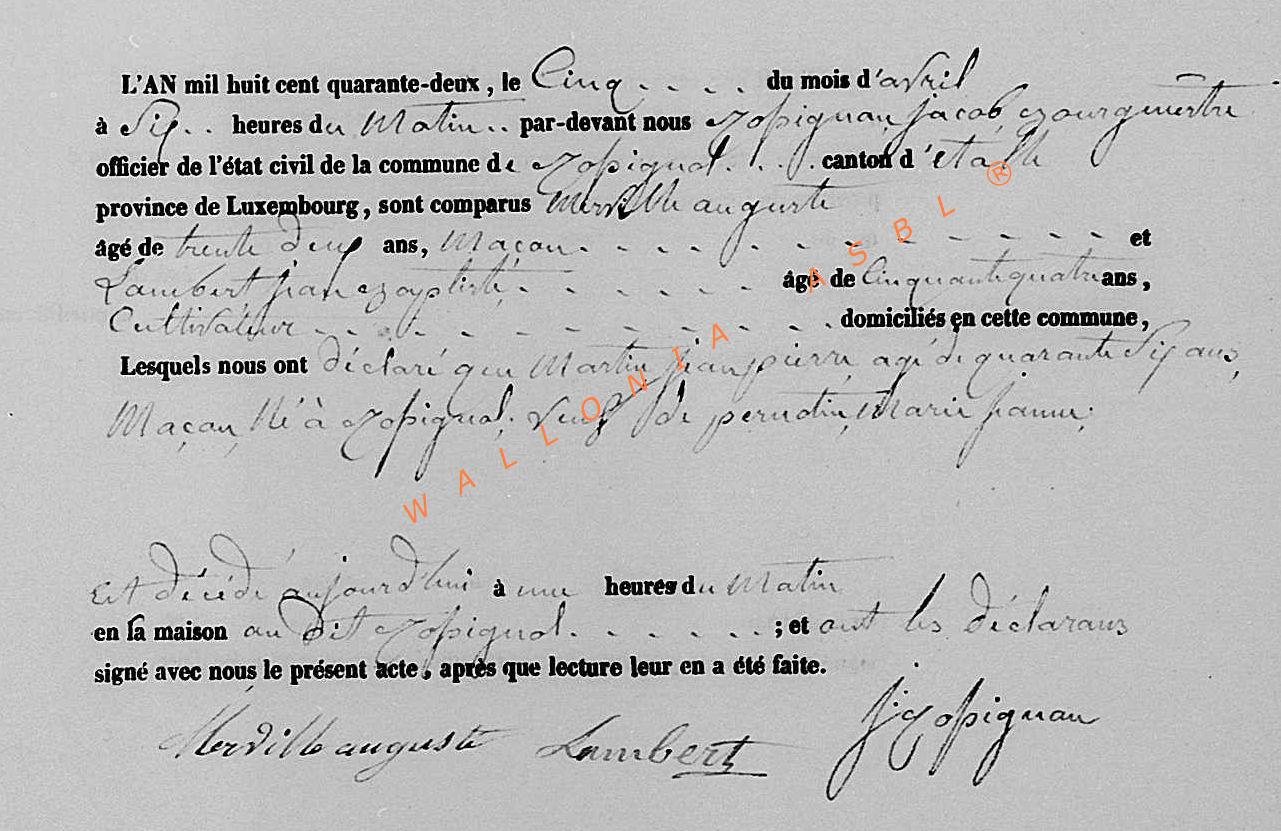 L'AN mil huit cent quarante-deux, le Cinq . . . . du mois d'avril
à Six . . heures du Matin . . par-devant nous Rossignon, jacob, Bourgmestre
officier de l'état civil de la commune de Rossignol . . . . canton d'étalle
province de Luxembourg, sont comparus Merville auguste
âgé de trente deux ans, Maçon . . . . et
Lambert, jean Baptiste, . . . . âge de Cinquante quatre ans,
Cultivateur . . . . domiciliés en cette commune,
Lesquels nous ont déclaré que Martin jean pierre, agé de quarante Six ans,
Maçon, Né à Rossignol, veuf de pernotin, Marie jeanne;
Est décédé aujourd'hui à une heures du Matin
en la maison au Dit Rossignol . . . . ; et ont les déclarans
signé avec nous le présent acte, après que lecture leur en a été faite.
Merville auguste Lambert j Rossignon
WALLONIA ASBL ®